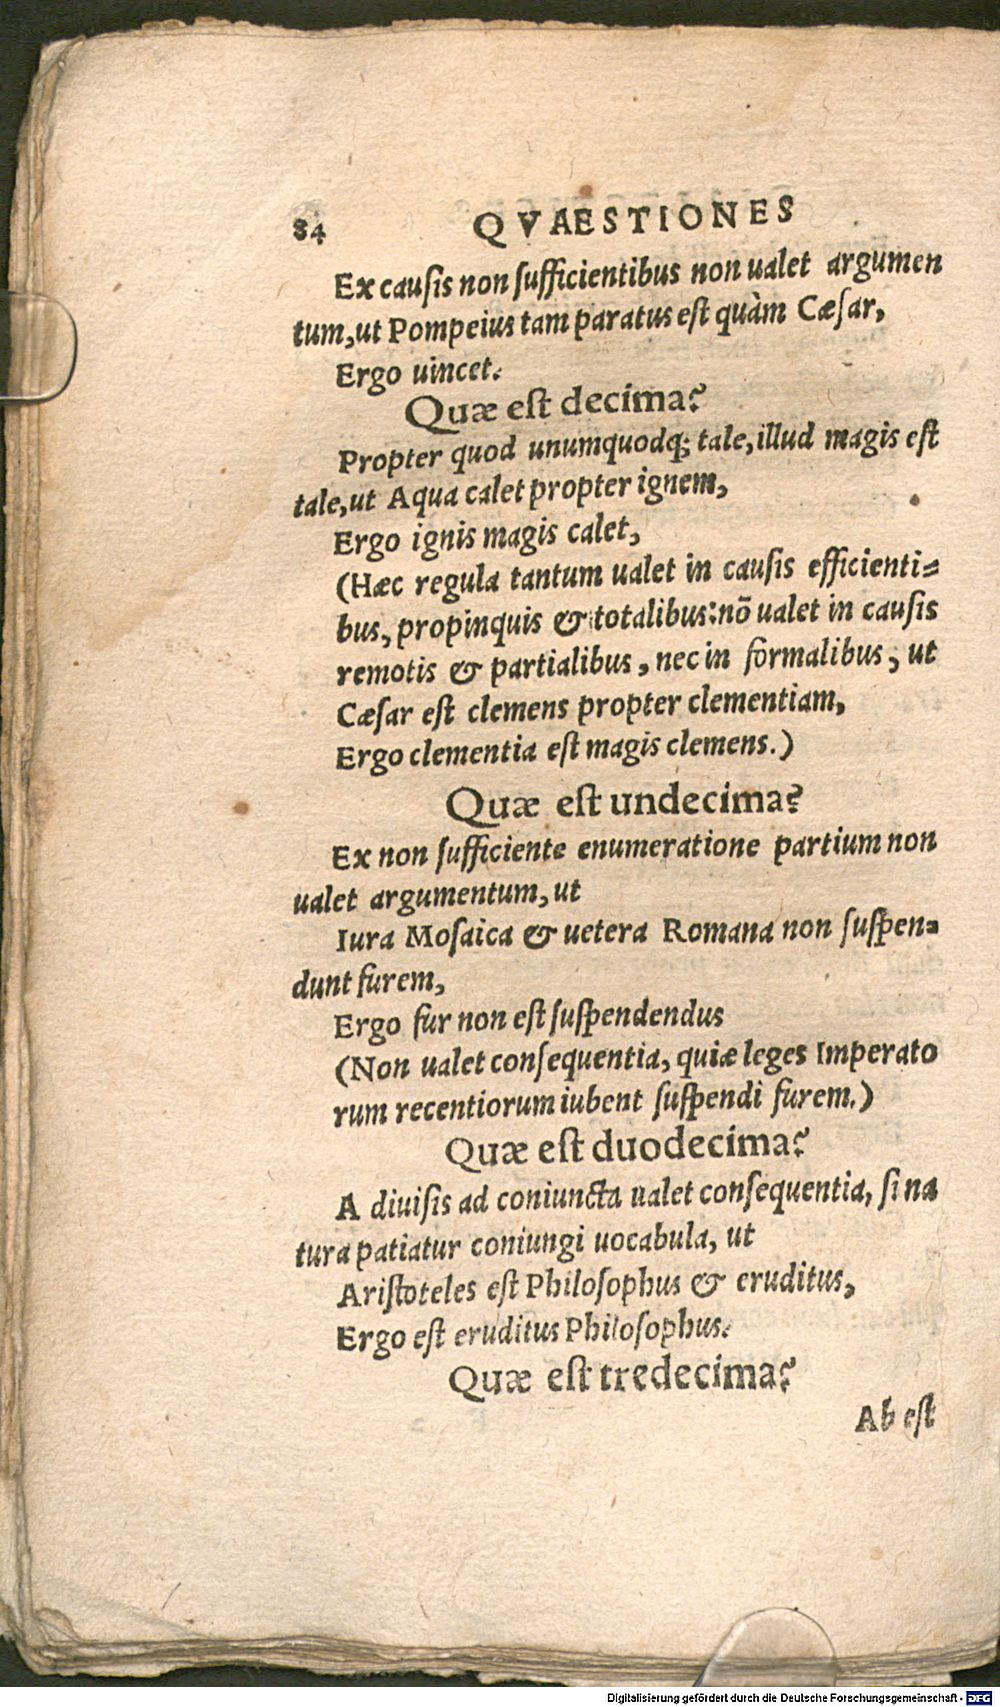 84 QVAESTIONES
Ex causis non sufficientibus non ualet argumen
tum, ut Pompeius tam paratus est quàm Cæsar,
Ergo uincet.
Quæ est decima?
Propter quod unumquodq; tale, illud magis est
tale, ut Aqua calet propter ignem,
Ergo ignis magis calet,
(Hæc regula tantum ualet in causis efficienti=
bus, propinquis & totalibus: nō ualet in causis
remotis & partialibus, nec in formalibus, ut
Cæsar est clemens propter clementiam,
Ergo clementia est magis clemens.)
Quæ est undecima?
Ex non sufficiente enumeratione partium non
ualet argumentum, ut
Iura Mosaica & uetera Romana non suspen=
dunt furem,
Ergo fur non est suspendendus
(Non ualet consequentia, quiæ leges Imperato
rum recentiorum iubent suspendi furem.)
Quæ est duodecima?
A diuisis ad coniuncta ualet consequentia, si na
tura patiatur coniungi uocabula, ut
Aristoteles est Philosophus & eruditus,
Ergo est eruditus Philosophus.
Quæ est tredecima?
Ab est
Digitalisierung gefördert durch die Deutsche Forschungsgemeinschaft - DFG